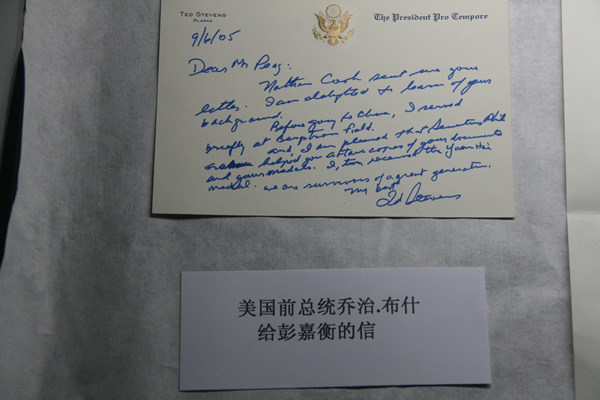 TED STEVENS
ALASKA
The President Pro Tempore
9/6/05
Dear Mr Peng:
Nathan Cook sent me your
letter. I am delighted to learn of your
background.
Before going to China, I served
briefly at Bergstrom field.
and, I am pleased that Senator
helped you attain copies of your documents
and your medals. I, too received the Yuan Hai
medal. We are survivors of a great generation.
My best
Ted Stevens
美国前总统乔治.布什
给彭嘉衡的信